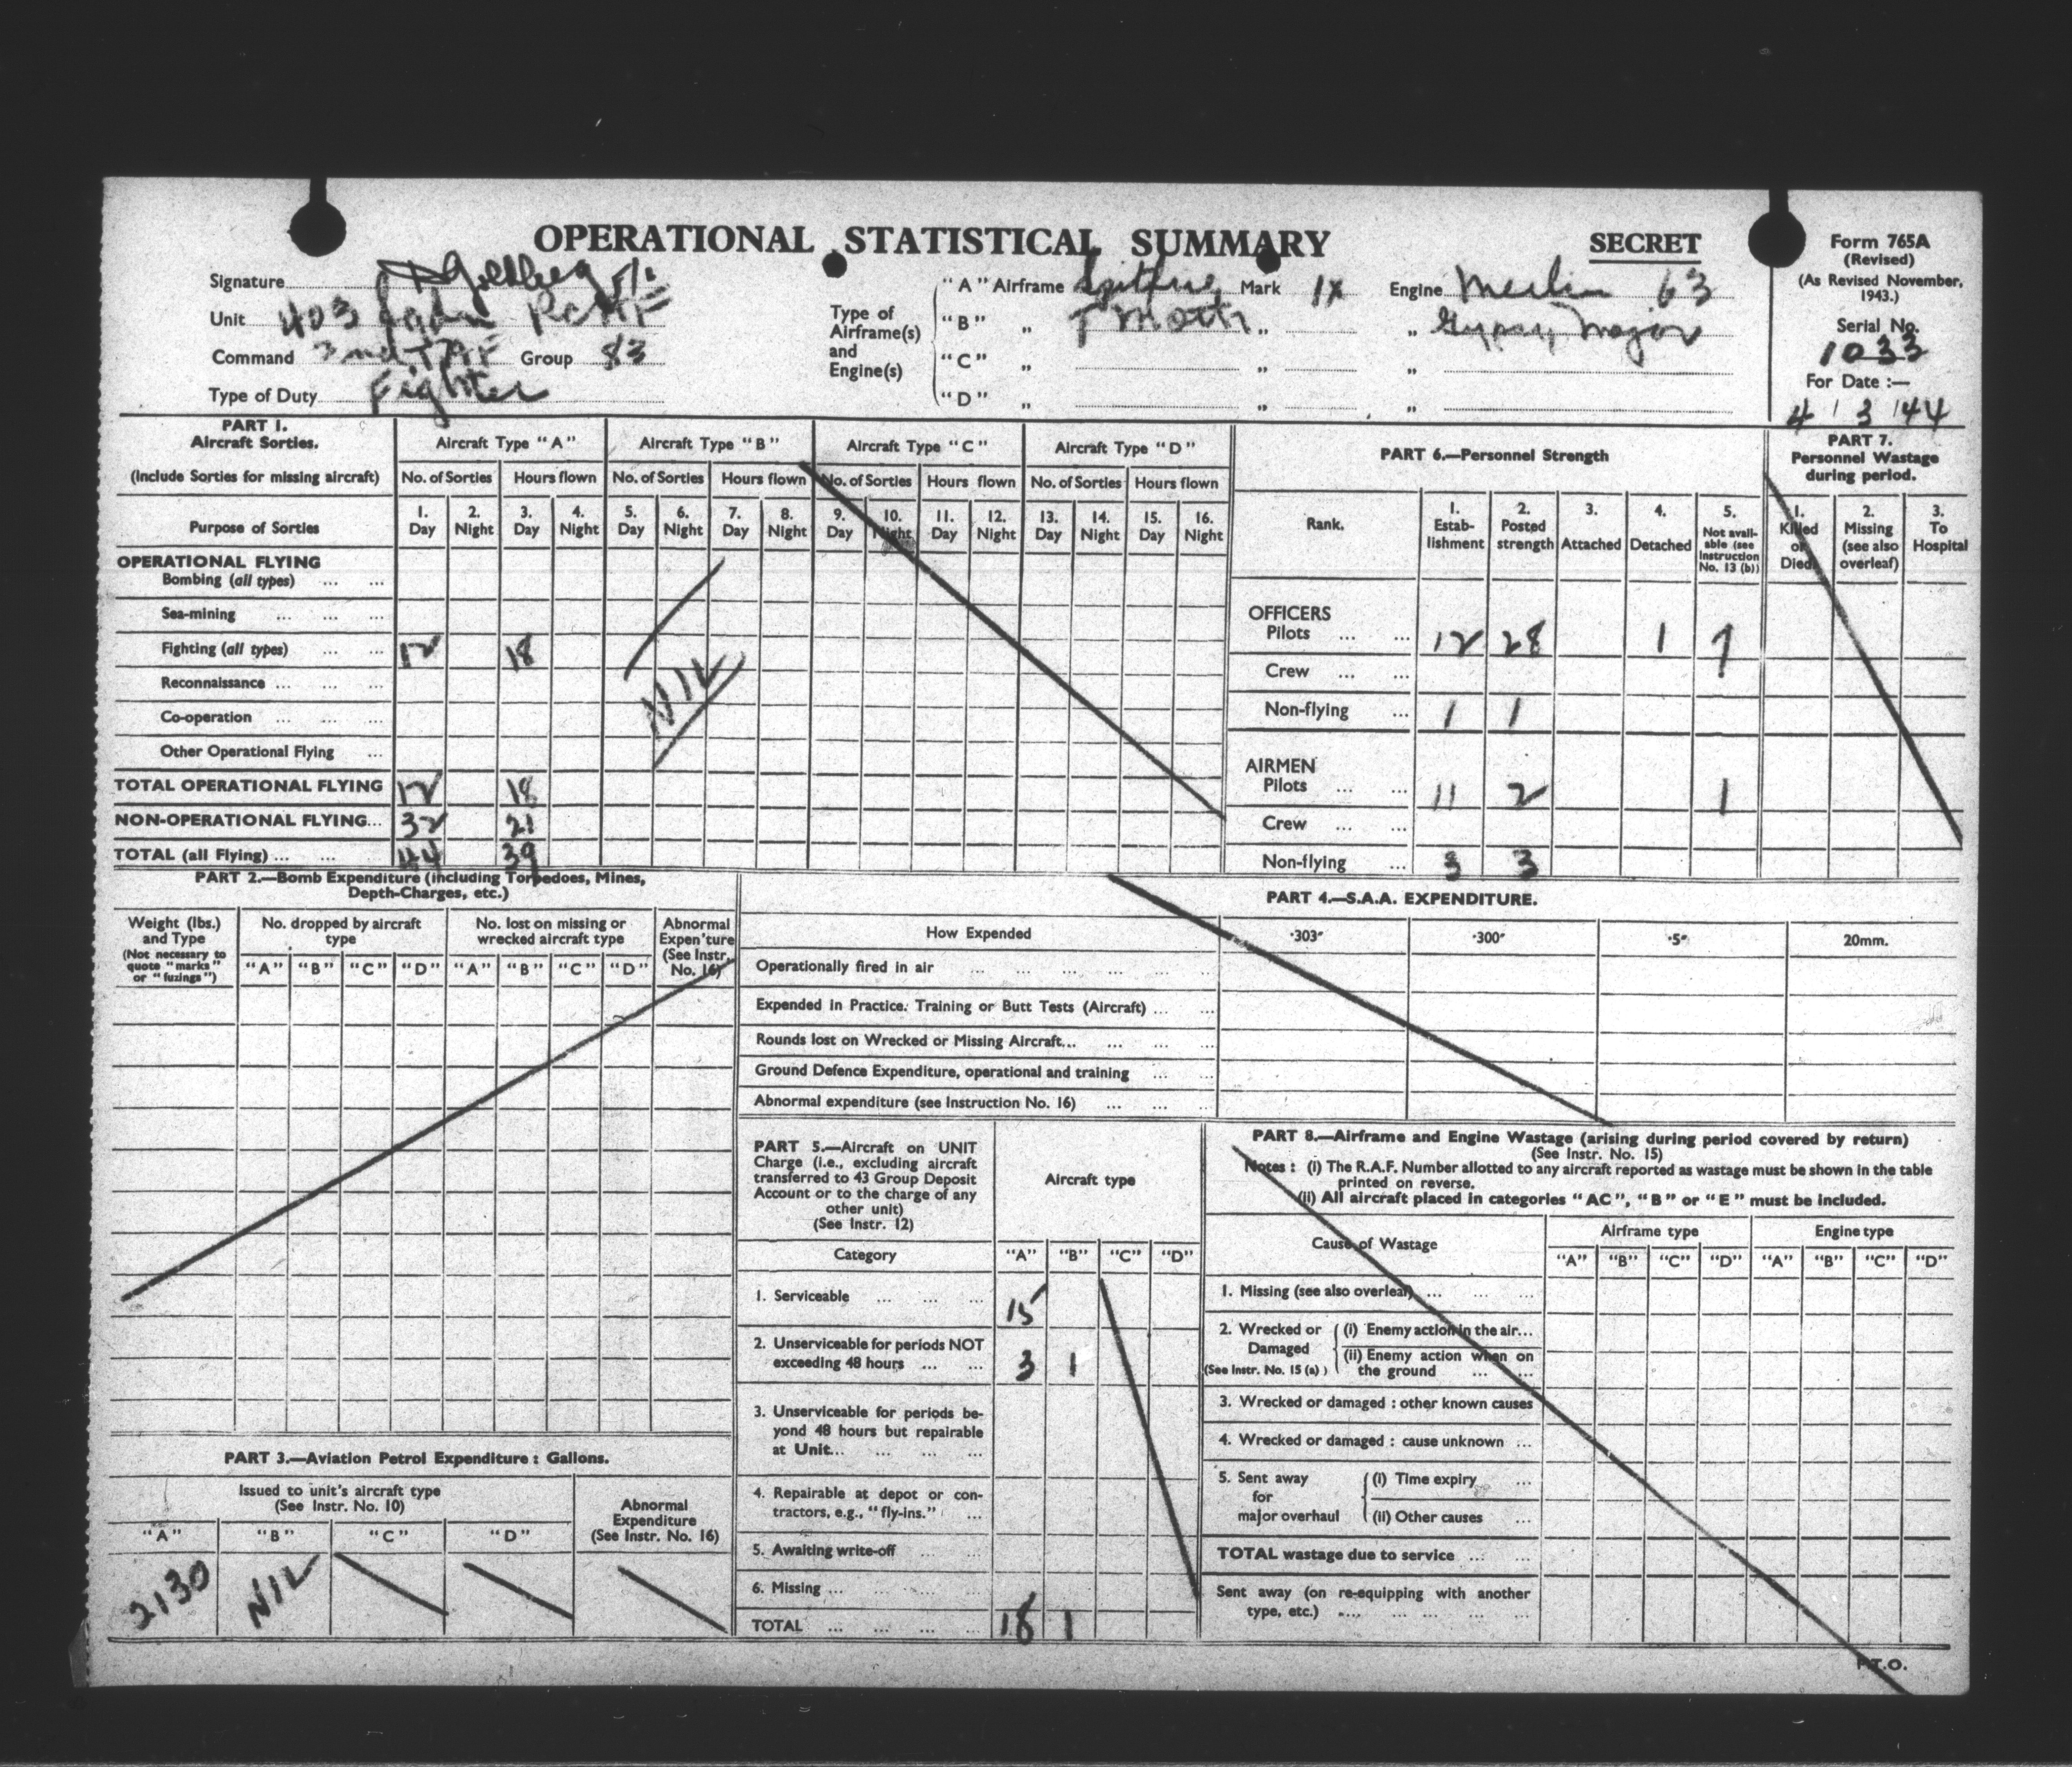 OPERATIONAL STATISTICAL SUMMARY
SECRET
Form 765A
(Revised)
(As Revised November, 1943.)
Serial No.
1033
For Date :—
4 3 44
Signature Goldberg F/L
Unit 403 Sqdn RCAF
Command 2nd TAF Group 83
Type of Duty Fighter
Type of Airframe(s) and Engine(s)
"A" Airframe Spitfire Mark IX Engine Merlin 63
"B" „ T Moth „ „ Gypsy Major
"C" „ „ „
"D" „ „ „
PART 1.
Aircraft Sorties.
(Include Sorties for missing aircraft)
Purpose of Sorties
Aircraft Type "A" Aircraft Type "B" Aircraft Type "C" Aircraft Type "D"
No. of Sorties Hours flown No. of Sorties Hours flown No. of Sorties Hours flown No. of Sorties Hours flown
1. Day 2. Night 3. Day 4. Night 5. Day 6. Night 7. Day 8. Night 9. Day 10. Night 11. Day 12. Night 13. Day 14. Night 15. Day 16. Night
OPERATIONAL FLYING
Bombing (all types) ... ...
Sea-mining ... ... ...
Fighting (all types) ... ... 12 18
Reconnaissance ... ... ...
Co-operation ... ... ...
Other Operational Flying ...
NIL
TOTAL OPERATIONAL FLYING 12 18
NON-OPERATIONAL FLYING... 32 21
TOTAL (all Flying) ... ... 44 39
PART 6.—Personnel Strength
Rank.
1. Establishment
2. Posted strength
3. Attached
4. Detached
5. Not available (see Instruction No. 13 (b))
OFFICERS
Pilots ... ... 12 28 1 7
Crew ... ...
Non-flying ... 1 1
AIRMEN
Pilots ... ... 11 2 1
Crew ... ...
Non-flying ... 3 3
PART 7.
Personnel Wastage during period.
1. Killed or Died
2. Missing (see also overleaf)
3. To Hospital
PART 2.—Bomb Expenditure (including Torpedoes, Mines, Depth-Charges, etc.)
Weight (lbs.) and Type
(Not necessary to quote "marks" or "fuzings")
No. dropped by aircraft type
No. lost on missing or wrecked aircraft type
Abnormal Expen'ture (See Instr. No. 16)
"A" "B" "C" "D" "A" "B" "C" "D"
PART 3.—Aviation Petrol Expenditure : Gallons.
Issued to unit's aircraft type
(See Instr. No. 10)
Abnormal Expenditure (See Instr. No. 16)
"A" "B" "C" "D"
2130 NIL
PART 4.—S.A.A. EXPENDITURE.
How Expended ·303" ·300" ·5" 20mm.
Operationally fired in air ... ... ... ... ... ...
Expended in Practice. Training or Butt Tests (Aircraft) ... ...
Rounds lost on Wrecked or Missing Aircraft... ... ... ...
Ground Defence Expenditure, operational and training ... ...
Abnormal expenditure (see Instruction No. 16) ... ... ...
PART 5.—Aircraft on UNIT
Charge (i.e., excluding aircraft
transferred to 43 Group Deposit
Account or to the charge of any
other unit)
(See Instr. 12)
Aircraft type
Category "A" "B" "C" "D"
1. Serviceable ... ... ... 15
2. Unserviceable for periods NOT
exceeding 48 hours ... ... 3 1
3. Unserviceable for periods be-
yond 48 hours but repairable
at Unit... ... ... ...
4. Repairable at depot or con-
tractors, e.g., "fly-ins." ...
5. Awaiting write-off ... ...
6. Missing ... ... ... ...
TOTAL ... ... ... ... 18 1
PART 8.—Airframe and Engine Wastage (arising during period covered by return)
(See Instr. No. 15)
Notes : (i) The R.A.F. Number allotted to any aircraft reported as wastage must be shown in the table
printed on reverse.
(ii) All aircraft placed in categories "AC", "B" or "E" must be included.
Cause of Wastage
Airframe type Engine type
"A" "B" "C" "D" "A" "B" "C" "D"
1. Missing (see also overleaf) ... ... ...
2. Wrecked or Damaged (See Instr. No. 15 (a))
(i) Enemy action in the air...
(ii) Enemy action when on
the ground ... ...
3. Wrecked or damaged : other known causes
4. Wrecked or damaged : cause unknown ...
5. Sent away for major overhaul
(i) Time expiry ...
(ii) Other causes ...
TOTAL wastage due to service ... ...
Sent away (on re-equipping with another
type, etc.) .... ... ... ... ...
P.T.O.